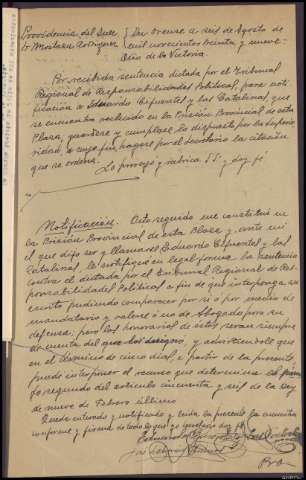 Providencia del Juez
En Orense a seis de Agosto de
mil novecientos treinta y nueve
Año de la Victoria.
Por recibida sentencia dictada por el Tribunal
Regional de Responsabilidades Políticas, para noti-
ficación a Eduardo Cifuentes y las Catalinas, que
se encuentra recluido en la Prisión Provincial de esta
Plaza, guárdese y cumplase lo dispuesto por la Superio-
ridad, a cuyo fin, hagase por el secretario la citación
que se ordena.
Lo proveyó y rubrica SS. y doy fé.
Notificación. Acto seguido me constituí en
la Prisión Provincial de esta Plaza y ante mi
el que dijo ser y llamarse Eduardo Cifuentes y las
Catalinas, le notifiqué en legal forma la sentencia
contra el dictada por el Tribunal Regional de Res-
ponsabilidades Políticas a fin de que interponga re-
curso pudiendo comparecer por si o por medio de
mandatario y valerse o no de Abogado para su
defensa, pero los honorarios de estos seran siempre
de cuenta del que los designe, y advirtiendole que
en el termino de cinco dias a partir de la presente
puede interponer el recurso que determina el
segundo del articulo cincuenta y seis de la Ley
de nueve de Febrero último.
Queda enterado y notificado y leida la presente la encuentra
conforme y firma de todo lo que yo secretario doy fé.